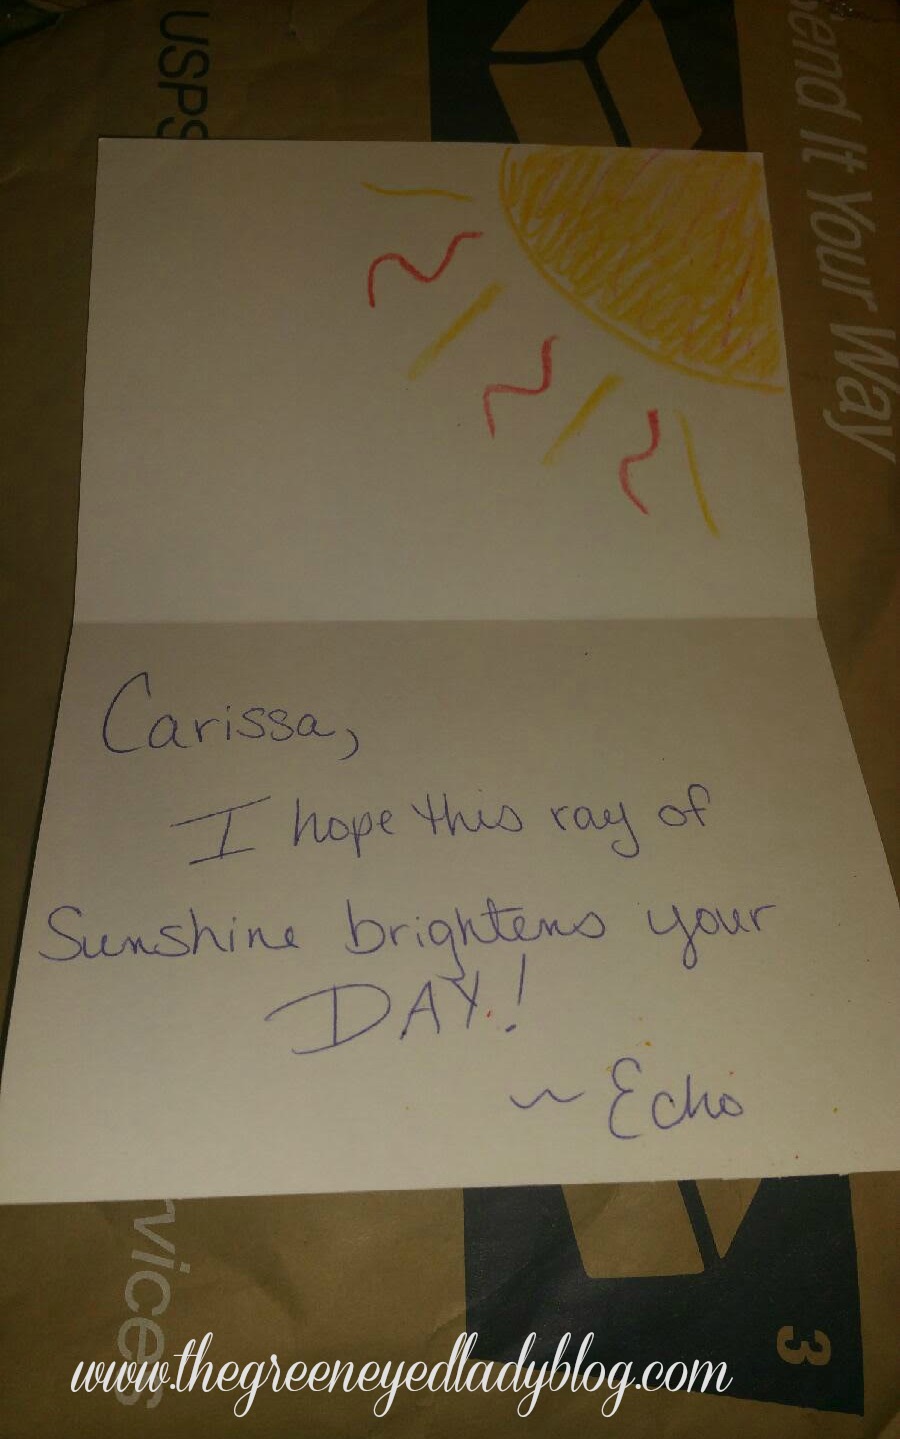 USPS
Send It Your Way
Carissa,
I hope this ray of
Sunshine brightens your
DAY!
~ Echo
rvices
3
www.thegreeneyedladyblog.com